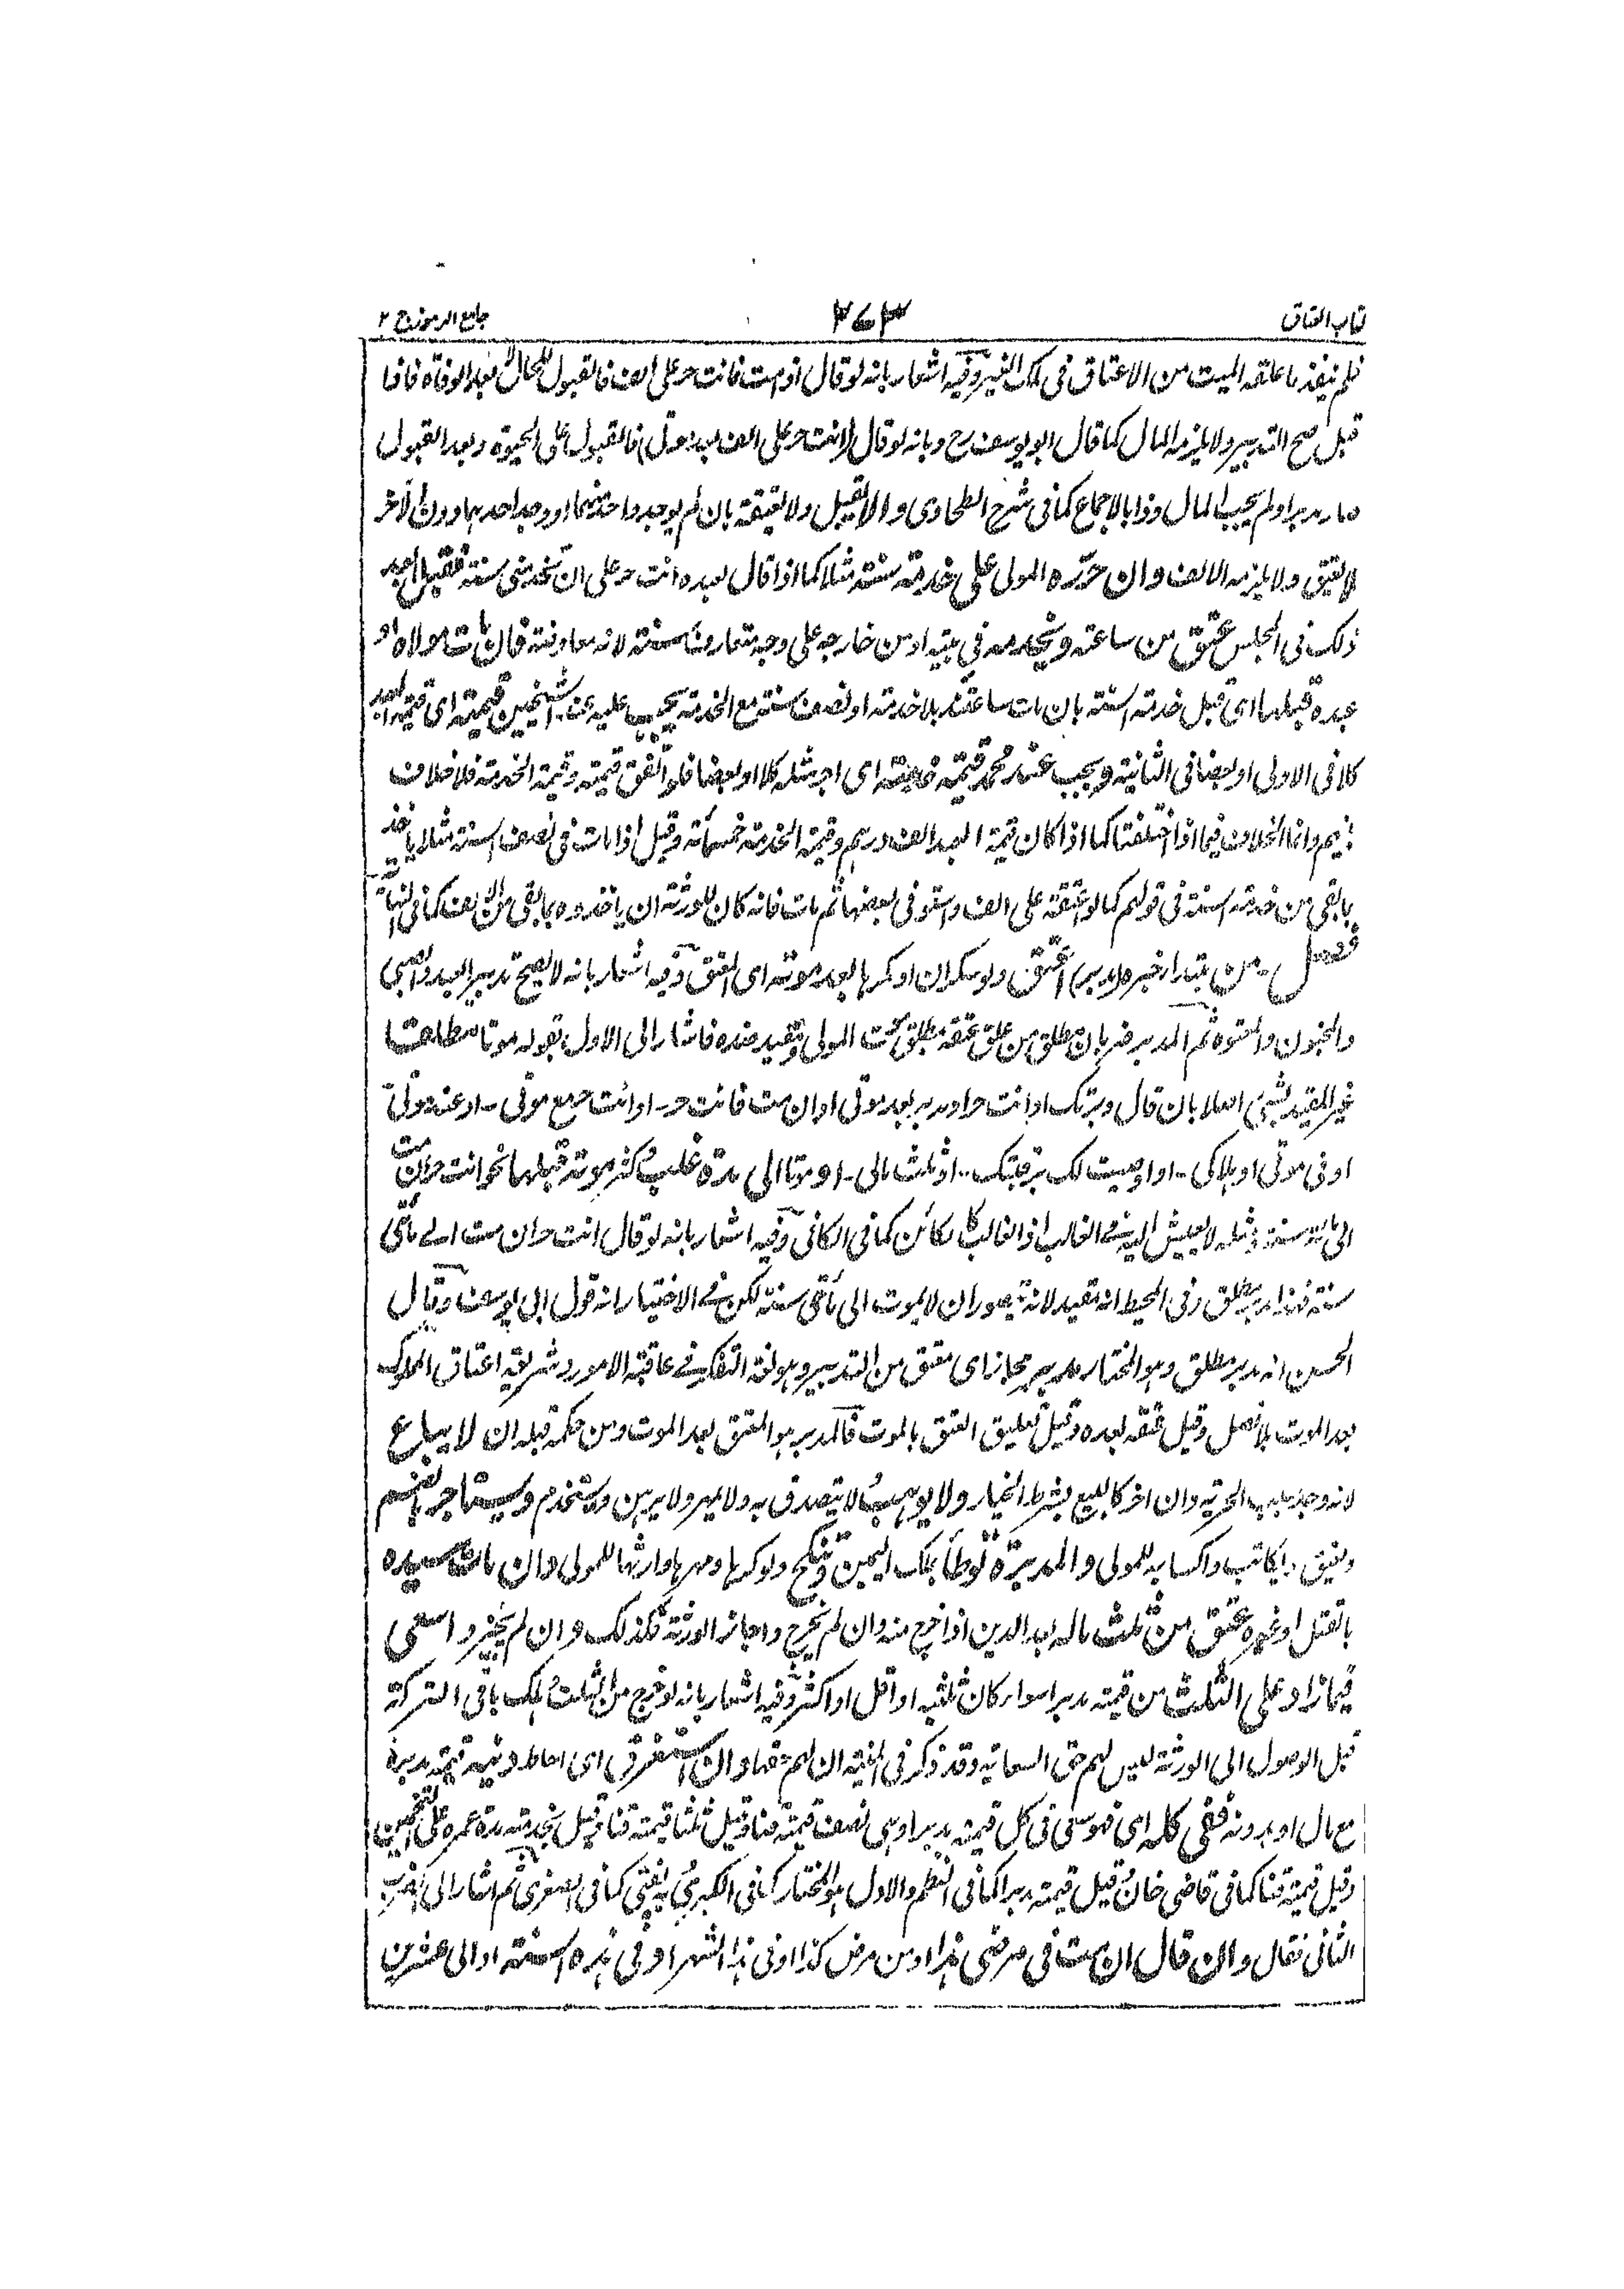 كتاب العتاق
٣٧٣
جامع الرموز ج ٢
فلم ينفذ ما علقه الميت من الاعتاق فى ملك الغير وفيه اشعار بانه لو قال اذا مت فانت حر على الف فالقبول للحال لا بعد الوفاة فاذا
قبل صح التدبير ولا يلزمه المال كما قال ابو يوسف رح وبانه لو قال انت حر على الف بعد موتى فالقبول على الحيوة وبعد القبول
صار مدبرا ولم يجب المال وذا بالاجماع كما فى شرح الطحاوى والا يقبل ولا يعتقه بان لم يوجد واحد منهما او وجد احدهما دون الآخر
لا يعتق ولا يلزمه الالف وان حرره المولى على خدمته سنة مثلا كما اذا قال لعبده انت حر على ان تخدمنى سنة فقبل العبد
ذلك فى المجلس عتق من ساعته ويخدمه فى بيته او من خارجه على وجه متعارف سنة لانه معاوضة فان مات مولاه او
عبده قبلها اى قبل خدمته السنة بان مات ساعتئذ بلا خدمة او نصف سنة مع الخدمة يجب عليه عند الشيخين قيمته اى قيمة العبد
كلا فى الاولى او بعضا فى الثانية ويجب عند محمد قيمة خدمته اى اجر مثله كلا او بعضا فلو اتفق قيمته وقيمة الخدمة فلا خلاف
بينهم وانما الخلاف فيما اذا اختلفتا كما اذا كان قيمة العبد الف درهم وقيمة الخدمة خمسمائة وقيل اذا مات فى نصف السنة مثلا يأخذ
بما بقى من خدمة السنة فى قولهم كما لو اعتقه على الف واستوفى بعضها ثم مات فانه كان للورثة ان يأخذوه بما بقى من الالف كما فى
فصل ـ من ولو سكران او مكرها بعد موته اى المعتق وفيه اشعار بانه لا يصح تدبير العبد والصبى
والمجنون والمعتوه ثم المدبر ضربان مطلق من علق عتقه بمطلق موت المولى ومقيد ضده فاشار الى الاول بقوله موتا مطلقا
غير المقيد بشئ اصلا بان قال دبرتك او انت حر او مدبر بعد موتى او ان مت فانت حر ـ او انت حر مع موتى ـ او عند موتى
او فى موتى او هلاكى ـ او اوصيت لك برقبتك ـ او ثلث مالى ـ او موتا الى مدة غلب كثر موته قبلها نحو انت حر ان مت
الى مائة سنة ومثله لا يعيش اليه فى الغالب اذ الغالب كالكائن كما فى الكافى وفيه اشعار بانه لو قال انت حر ان مت الى مأتى
سنة فهذا مدبر مطلق وفى المحيط انه مقيد لانه يتصور ان لا يموت الى مأتى سنة لكن فى الاختيار انه قول ابى يوسف وقال
الحسن انه مدبر مطلق وهو المختار مدبر مجازا اى معتق من التدبير وهو لغة التفكر فى عاقبة الامور وشريعة اعتاق المملوك
بعد الموت بلا فصل وقيل عتقه بعده وقيل تعليق العتق بالموت فالمدبر هو المعتق بعد الموت ومن حكمه قبله ان لا يباع
لانه وجد سبب الحرية وان اخر كالبيع بشرط الخيار ولا يوهب ولا يتصدق به ولا يمهر ولا يرهن ويستخدم ويستاجر
ويعتق ويكاتب واكسابه للمولى والمدبرة توطأ بملك اليمين وتنكح ولو كرها ومهرها وارثها للمولى وان مات سيده
بالقتل او غيره عتق من ثلث ماله بعد الدين اذا خرج منه وان لم يخرج واجاز الورثة فكذلك وان لم يجيزوا سعى
فيما زاد على الثلث من قيمته مدبرا سواء كان ثلثيه او اقل او اكثر وفيه اشعار بانه لو خرج من الثلث وهلك باقى التركة
قبل الوصول الى الورثة ليس لهم حق السعاية وقد ذكر فى المنية ان لهم حقها وان استغرق اى احاط دينه قيمة مدبره
مع مال او بدونه ففى كله اى فهو سعى فى كل قيمته مدبرا وهى نصف قيمته قنا وقيل ثلثا قيمته قنا وقيل بخدمته مدة عمره على التخمين
وقيل قيمته قنا كما فى قاضى خان وقيل قيمته مدبرا كما فى النظم والاول هو المختار كما فى الكبرى وبه يفتى كما فى الصغرى ثم اشار الى الضرب
الثانى فقال وان قال ان مت فى مرضى هذا او من مرض كذا او فى هذا الشهر او فى هذه السنة او الى عشرين